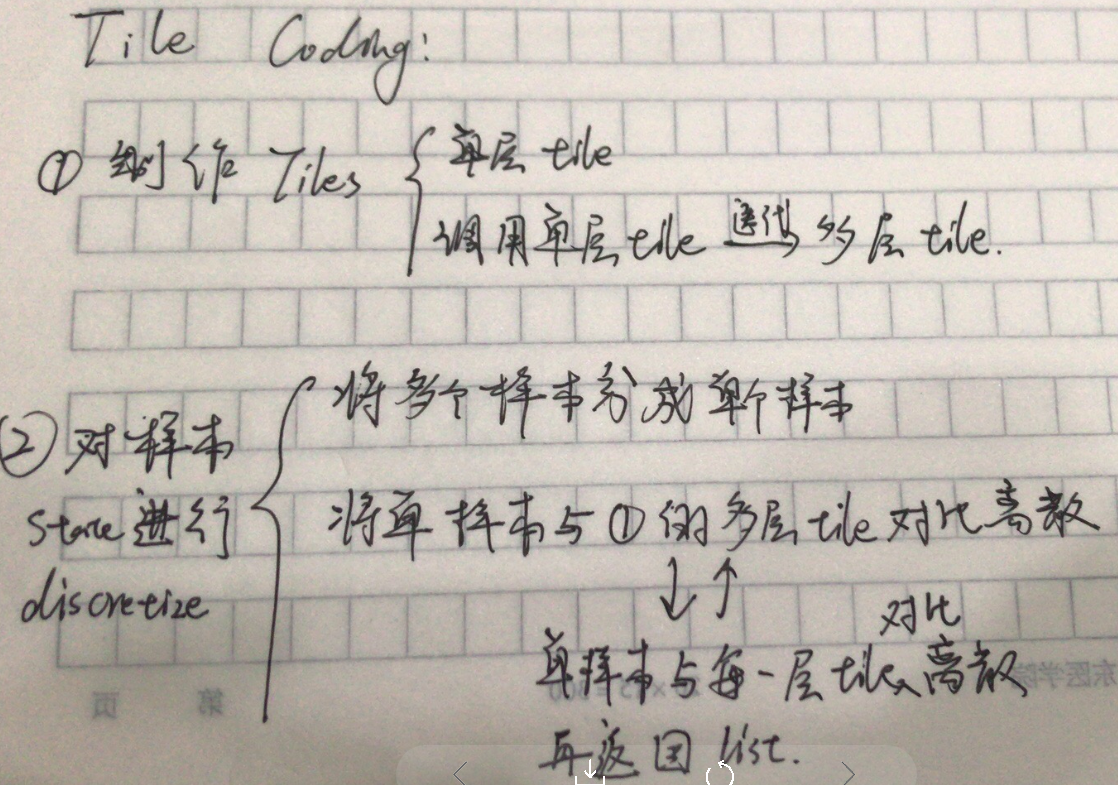 Tile Coding:
① 制作 Tiles
单层 tile
调用单层 tile 迭代 多层 tile.
② 对样本
state 进行
discretize
将多个样本分成单个样本
将单样本与 ① 的多层 tile 对比离散
单样本与每一层 tile 对比离散
再返回 list.
第 页
东医学院